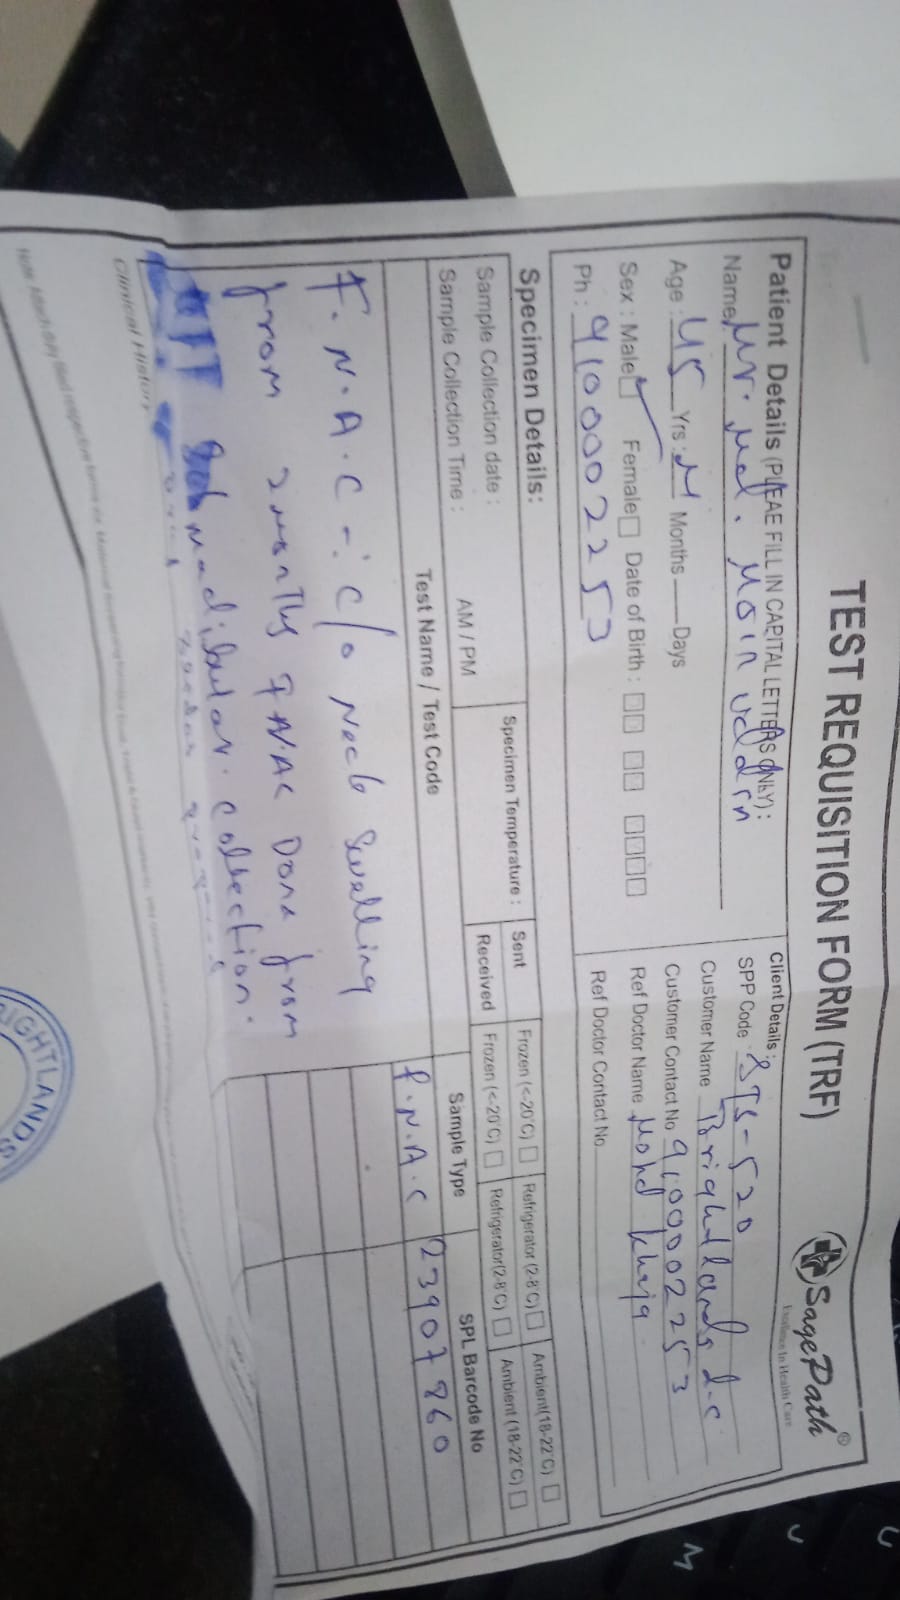 TEST REQUISITION FORM (TRF)
SagePath®
Excellence In Health Care
Patient Details (PLEAE FILL IN CAPITAL LETTERS ONLY) :
Name Mr. Md. Moin uddin
Age : 45 Yrs : M Months Days
Sex : Male Female Date of Birth :
Ph : 9100002253
Client Details :
SPP Code : 520
Customer Name Brightlands d-c
Customer Contact No 9100002253
Ref Doctor Name Mohd Khaja
Ref Doctor Contact No
Specimen Details:
Sample Collection date :
Sample Collection Time : AM / PM
Specimen Temperature :
Sent Frozen (<-20°C) Refrigerator (2-8°C) Ambient(18-22°C)
Received Frozen (<-20°C) Refrigerator(2-8°C) Ambient (18-22°C)
Test Name / Test Code Sample Type SPL Barcode No
F.N.A.C 23907860
F.N.A.C -: c/o Neck Swelling
from 2 months FNAC Done from
Submadibular. collection.
Clinical History
RIGHTLANDS